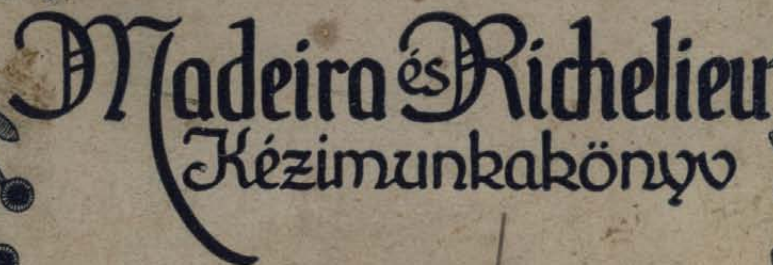 Madeira és Richelieu
Kézimunkakönyv